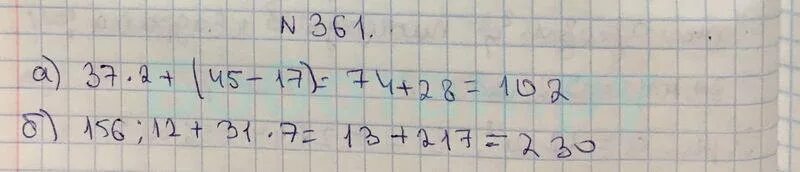 N 361.
а) 37·2+(45-17)=74+28=102
б) 156:12+31·7=13+217=230